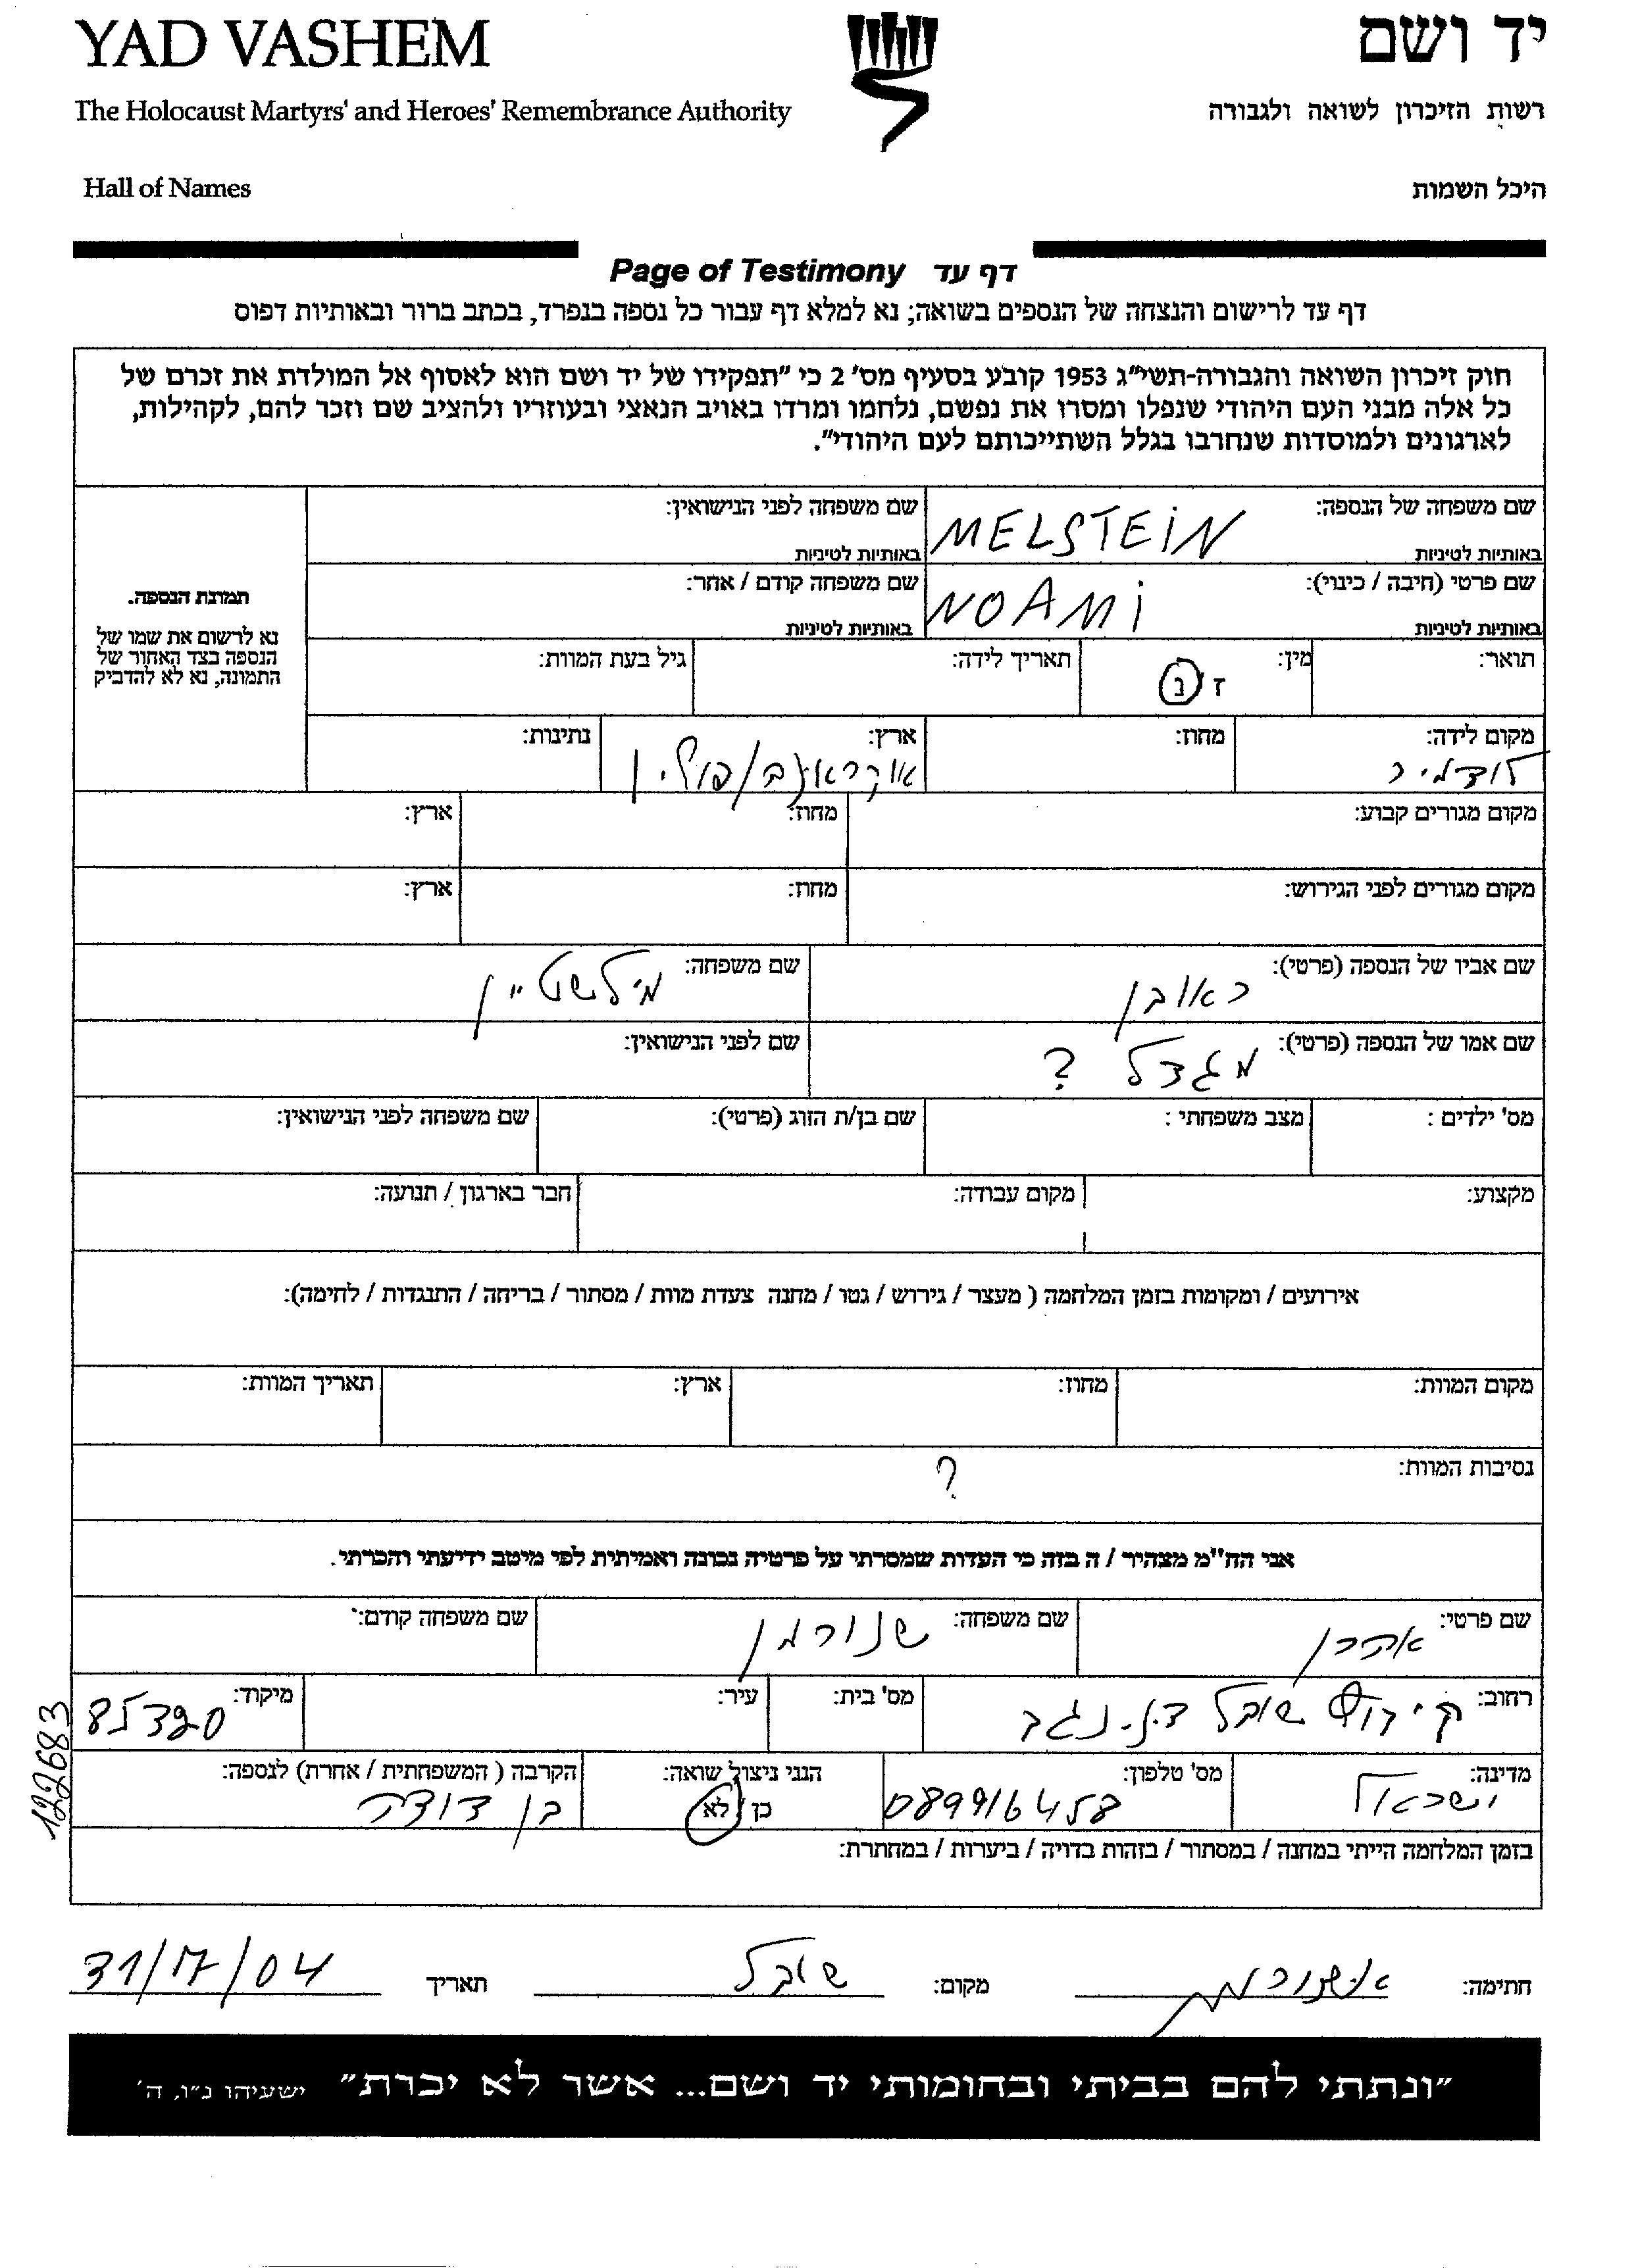 YAD VASHEM
יד ושם
The Holocaust Martyrs' and Heroes' Remembrance Authority
רשות הזיכרון לשואה ולגבורה
Hall of Names
היכל השמות
Page of Testimony דף עד
דף עד לרישום והנצחה של הנספים בשואה; נא למלא דף עבור כל נספה בנפרד, בכתב ברור ובאותיות דפוס
חוק זיכרון השואה והגבורה-תשי"ג 1953 קובע בסעיף מס' 2 כי "תפקידו של יד ושם הוא לאסוף אל המולדת את זכרם של
כל אלה מבני העם היהודי שנפלו ומסרו את נפשם, נלחמו ומרדו באויב הנאצי ובעוזריו ולהציב שם וזכר להם, לקהילות,
לארגונים ולמוסדות שנחרבו בגלל השתייכותם לעם היהודי".
שם משפחה של הנספה: MELSTEIN שם משפחה לפני הנישואין:
באותיות לטיניות באותיות לטיניות
שם פרטי (חיבה / כינוי): NOAMI שם משפחה קודם / אחר:
באותיות לטיניות באותיות לטיניות
תמונת הנספה.
נא לרשום את שמו של
הנספה בצד האחור של
התמונה, נא לא להדביק
תואר: מין: ז / נ תאריך לידה: גיל בעת המוות:
מקום לידה: מחוז: ארץ: נתינות:
לודמיר אוקראינה/פולין
מקום מגורים קבוע: מחוז: ארץ:
מקום מגורים לפני הגירוש: מחוז: ארץ:
שם אביו של הנספה (פרטי): ראובן שם משפחה: מילשטיין
שם אמו של הנספה (פרטי): מגדל ? שם לפני הנישואין:
מס' ילדים : מצב משפחתי : שם בן/ת הזוג (פרטי): שם משפחה לפני הנישואין:
מקצוע: מקום עבודה: חבר בארגון / תנועה:
אירועים / ומקומות בזמן המלחמה ( מעצר / גירוש / גטו / מחנה צעדת מוות / מסתור / בריחה / התנגדות / לחימה):
מקום המוות: מחוז: ארץ: תאריך המוות:
נסיבות המוות: ?
אני הח"מ מצהיר / ה בזה כי העדות שמסרתי על פרטיה נכונה ואמיתית לפי מיטב ידיעתי והכרתי.
שם פרטי: אהרן שם משפחה: שנורמן שם משפחה קודם:
רחוב: קיבוץ שובל ד.נ. נגב מס' בית: עיר: מיקוד: 85320
מדינה: ישראל מס' טלפון: 089916458 הנני ניצול שואה: כן / לא הקרבה ( המשפחתית / אחרת) לנספה: בן דודה
122683
בזמן המלחמה הייתי במחנה / במסתור / בזהות בדויה / ביערות / במחתרת:
חתימה: א.שנורמן מקום: שובל תאריך 31/7/04
"ונתתי להם בביתי ובחומותי יד ושם... אשר לא יכרת" ישעיהו נ"ו, ה'